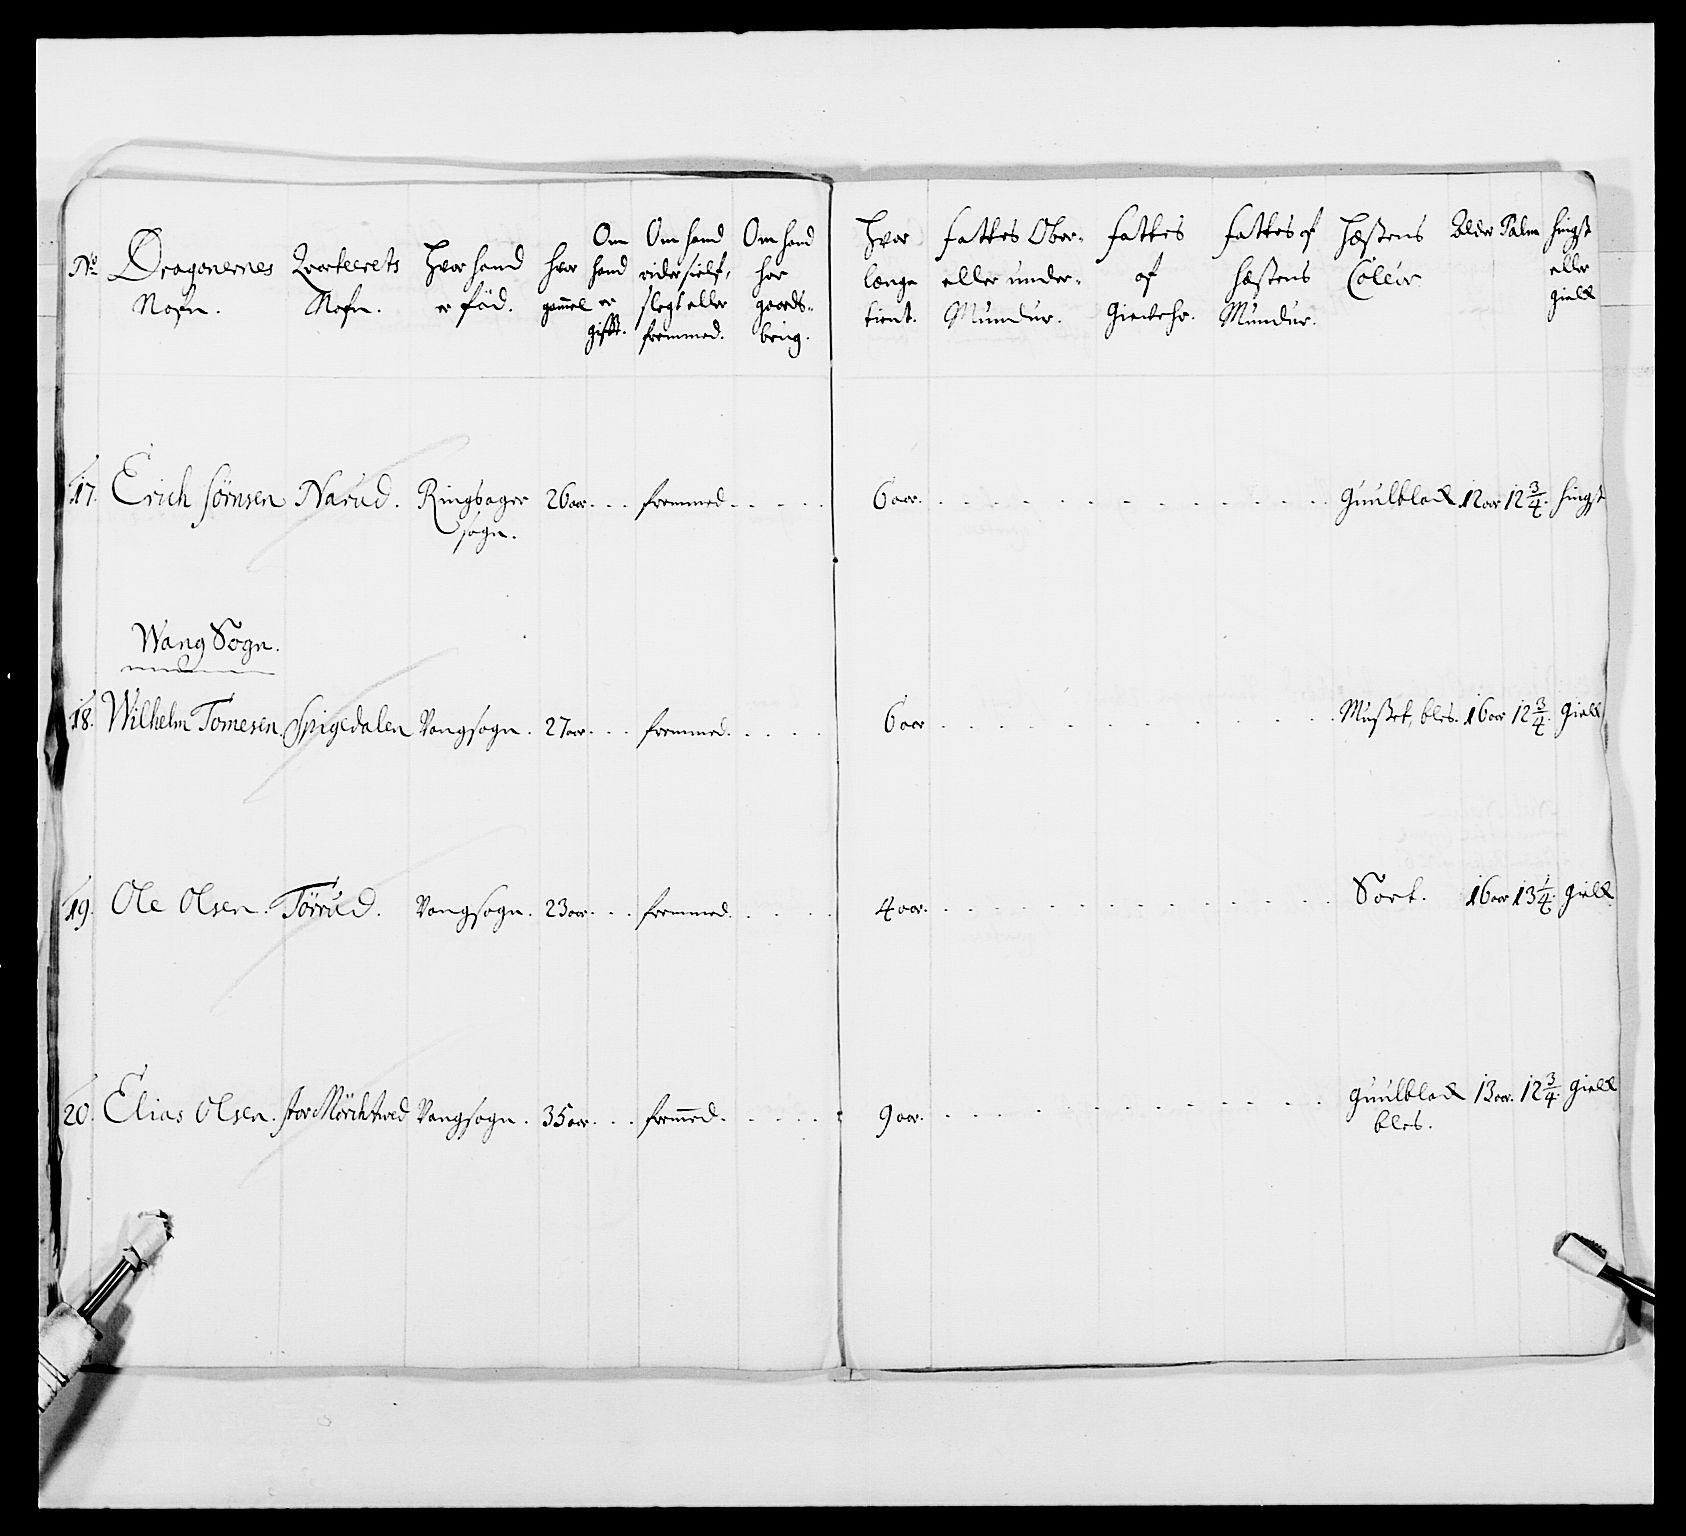 No Dragonernes Nafn. Qvarteerets Nafn. Hvor hand er fød. hvor gam̄el Om hand er gifft. Om hand rider sielf, slegt eller fremmed. Om hand har gaards- brug. Hvor længe tient. fattes Ober- eller under- Mundur. fattes af Giewehr. fattes af hæstens Mundur. Hæstens Coleur Alder Palm hingst eller gield
17. Erich Sørnsen Narud. Ringsager 26 aar. . . fremmed. . . . . 6 aar. . . . Guulblack 12 aar 12 3/4. hingst
sogn.
Wang Sogn.
18. Wilhelm Tomesen. Spigedalen Vangsogn. 27 aar. . . fremmed. . . . . 6 aar . . . Musset, bles. 16 aar 12 3/4. gield
19. Ole Olsen. Törrud. Vangsogn. 23 aar. . . fremmed. . . . . 4 aar. . . . Sort. 16 aar 13 1/4. gield
20. Elias Olsen. stor Mörchtved Vangsogn. 35 aar. . . frem̄ed. . . . . 9 aar. . . . Guulblack 13 aar. 12 3/4. gield
bles.